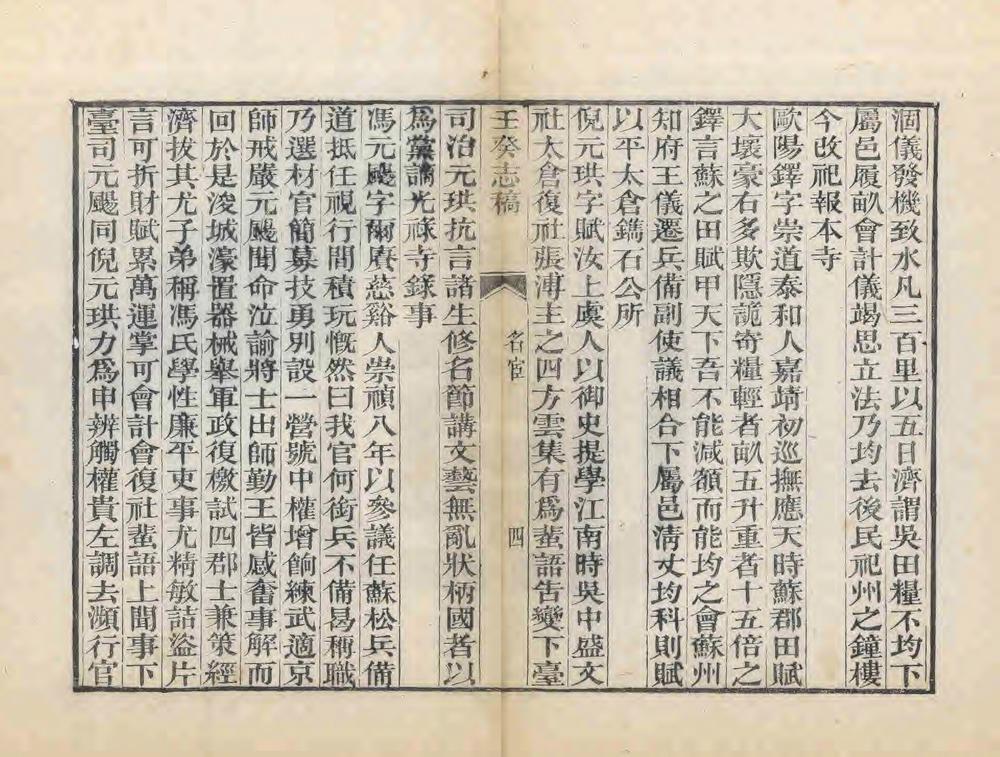 涸儀發機致水凡三百里以五日濟謂吳田糧不均下
屬邑履畝會計儀竭思立法乃均去後民祀州之鐘樓
今改祀報本寺
歐陽鐸字崇道泰和人嘉靖初巡撫應天時蘇郡田賦
大壞豪右多欺隱詭寄糧輕者畝五升重者十五倍之
鐸言蘇之田賦甲天下吾不能減額而能均之會蘇州
知府王儀遷兵備副使議相合下屬邑淸丈均科則賦
以平太倉鐫石公所
倪元珙字賦汝上虞人以御史提學江南時吳中盛文
社太倉復社張溥主之四方雲集有爲蜚語告變下臺
壬癸志稿
名宦
四
司治元珙抗言諸生修名節講文藝無亂狀柄國者以
爲黨謫光祿寺錄事
馮元颺字爾賡慈谿人崇禎八年以參議任蘇松兵備
道抵任視行間積玩慨然曰我官何銜兵不備曷稱職
乃選材官簡募技勇別設一營號中權增餉練武適京
師戒嚴元颺聞命泣諭將士出師勤王皆感奮事解而
回於是浚城濠置器械舉軍政復檄試四郡士兼策經
濟拔其尤子弟稱馮氏學性廉平吏事尤精敏詰盜片
言可折財賦累萬運掌可會計會復社蜚語上聞事下
臺司元颺同倪元珙力爲申辨觸權貴左調去瀕行官